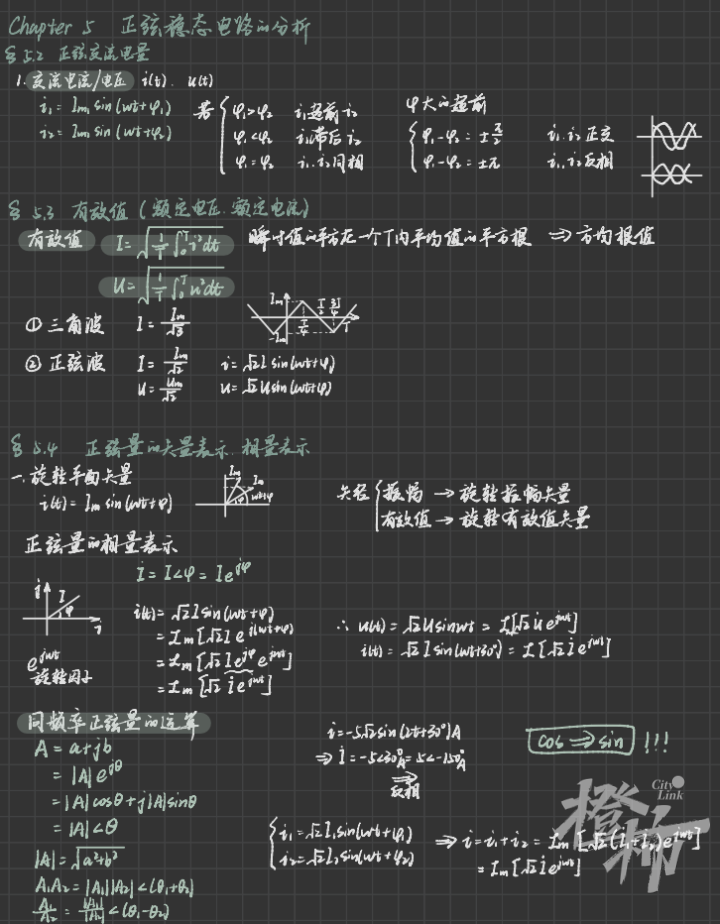 Chapter 5 正弦稳态电路的分析
§5.2 正弦交流电量
1. 交流电流/电压 i(t). u(t)
i₁ = Im₁ sin(wt+φ₁)
i₂ = Im sin(wt+φ₂)
若 { φ₁>φ₂ i₁超前i₂
φ₁<φ₂ i₁滞后i₂
φ₁=φ₂ i₁.i₂同相
φ大的超前
{ φ₁-φ₂ = ±π/2 i₁.i₂正交
φ₁-φ₂ = ±π i₁.i₂反相
§5.3 有效值 (额定电压.额定电流)
有效值 I = √(1/T ∫₀ᵀ i²dt) 瞬时值的平方在一个T内平均值的平方根 ⇒ 方均根值
U = √(1/T ∫₀ᵀ u²dt)
① 三角波 I = Im/√3
Im
-Im
T/4
T/2
3T/4
T
② 正弦波 I = Im/√2 i = √2 I sin(wt+φ)
U = Um/√2 u = √2 U sin(wt+φ)
§5.4 正弦量的矢量表示.相量表示
一.旋转平面矢量
i(t) = Im sin(wt+φ)
Im
Im
wt+φ
φ
矢径 { 振幅 → 旋转振幅矢量
有效值 → 旋转有效值矢量
正弦量的相量表示
İ = I∠φ = Ie^jφ
j
I
φ
e^jwt
旋转因子
i(t) = √2 I sin(wt+φ)
= Im[√2 I e^j(wt+φ)]
= Im[√2 I e^jφ e^jwt]
= Im[√2 İ e^jwt]
∴ u(t) = √2 U sinwt = I[√2 U̇ e^jwt]
i(t) = √2 I sin(wt+30°) = I[√2 İ e^jwt]
同频率正弦量的运算
A = a+jb
= |A|e^jθ
= |A|cosθ+j|A|sinθ
= |A|∠θ
|A| = √(a²+b²)
A₁A₂ = |A₁||A₂|∠(θ₁+θ₂)
A₁/A₂ = |A₁|/|A₂| ∠(θ₁-θ₂)
i = -5√2 sin(2t+30°)A
⇒ İ = -5∠30°A = 5∠-150°A
⇒
反相
cos ⇒ sin !!!
{ i₁ = √2 I₁ sin(wt+φ₁)
i₂ = √2 I₂ sin(wt+φ₂)
⇒ i = i₁+i₂ = Im[√2(İ₁+İ₂)e^jwt]
= Im[√2 İ e^jwt]
City Link
橙柿